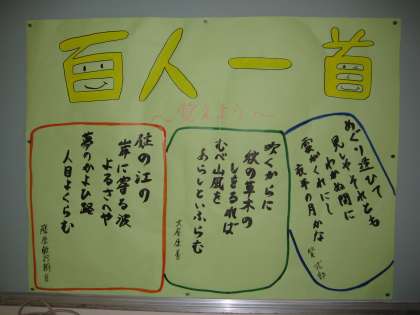 百人一首
～覚えよう～
めぐり逢ひて
見しやそれとも
わかぬ間に
雲がくれにし
夜半の月かな
紫式部
吹くからに
秋の草木の
しをるれば
むべ山風を
あらしといふらむ
文屋康秀
住の江の
岸に寄る波
よるさへや
夢のかよひ路
人目よくらむ
藤原敏行朝臣